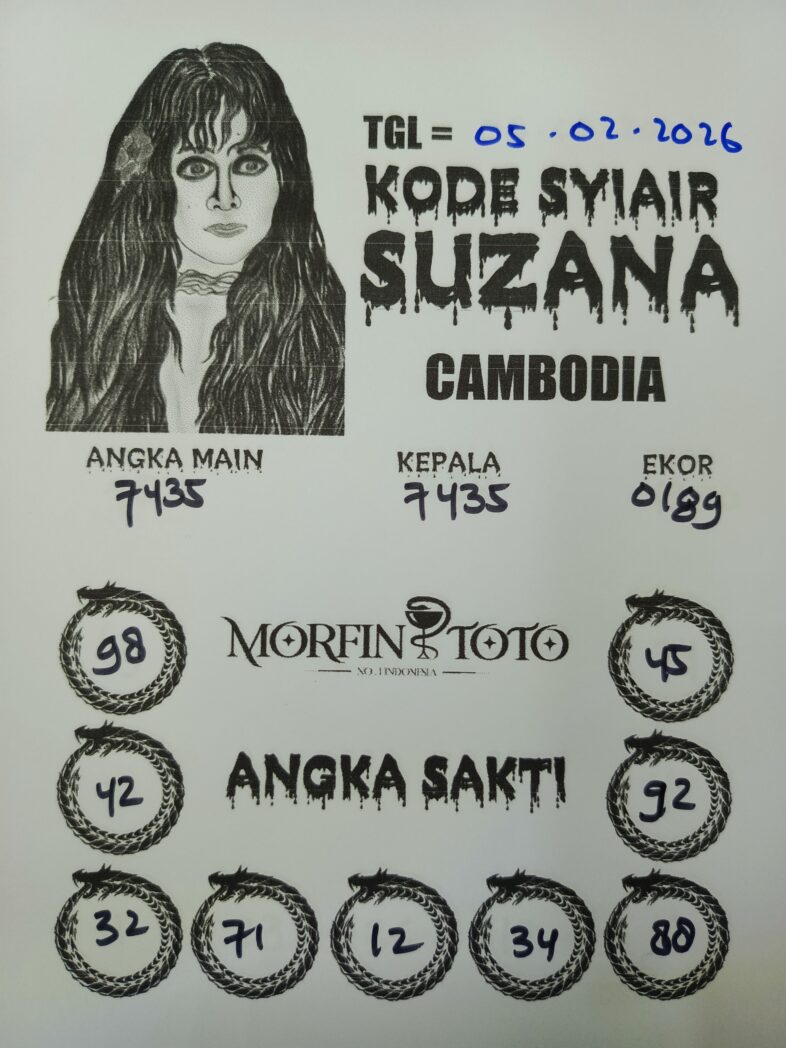 TGL = 05.02.2026
KODE SYIAIR
SUZANA
CAMBODIA
ANGKA MAIN KEPALA EKOR
7435 7435 0189
98 MORFIN TOTO 45
NO.1 INDONESIA
42 ANGKA SAKTI 92
32 71 12 34 88